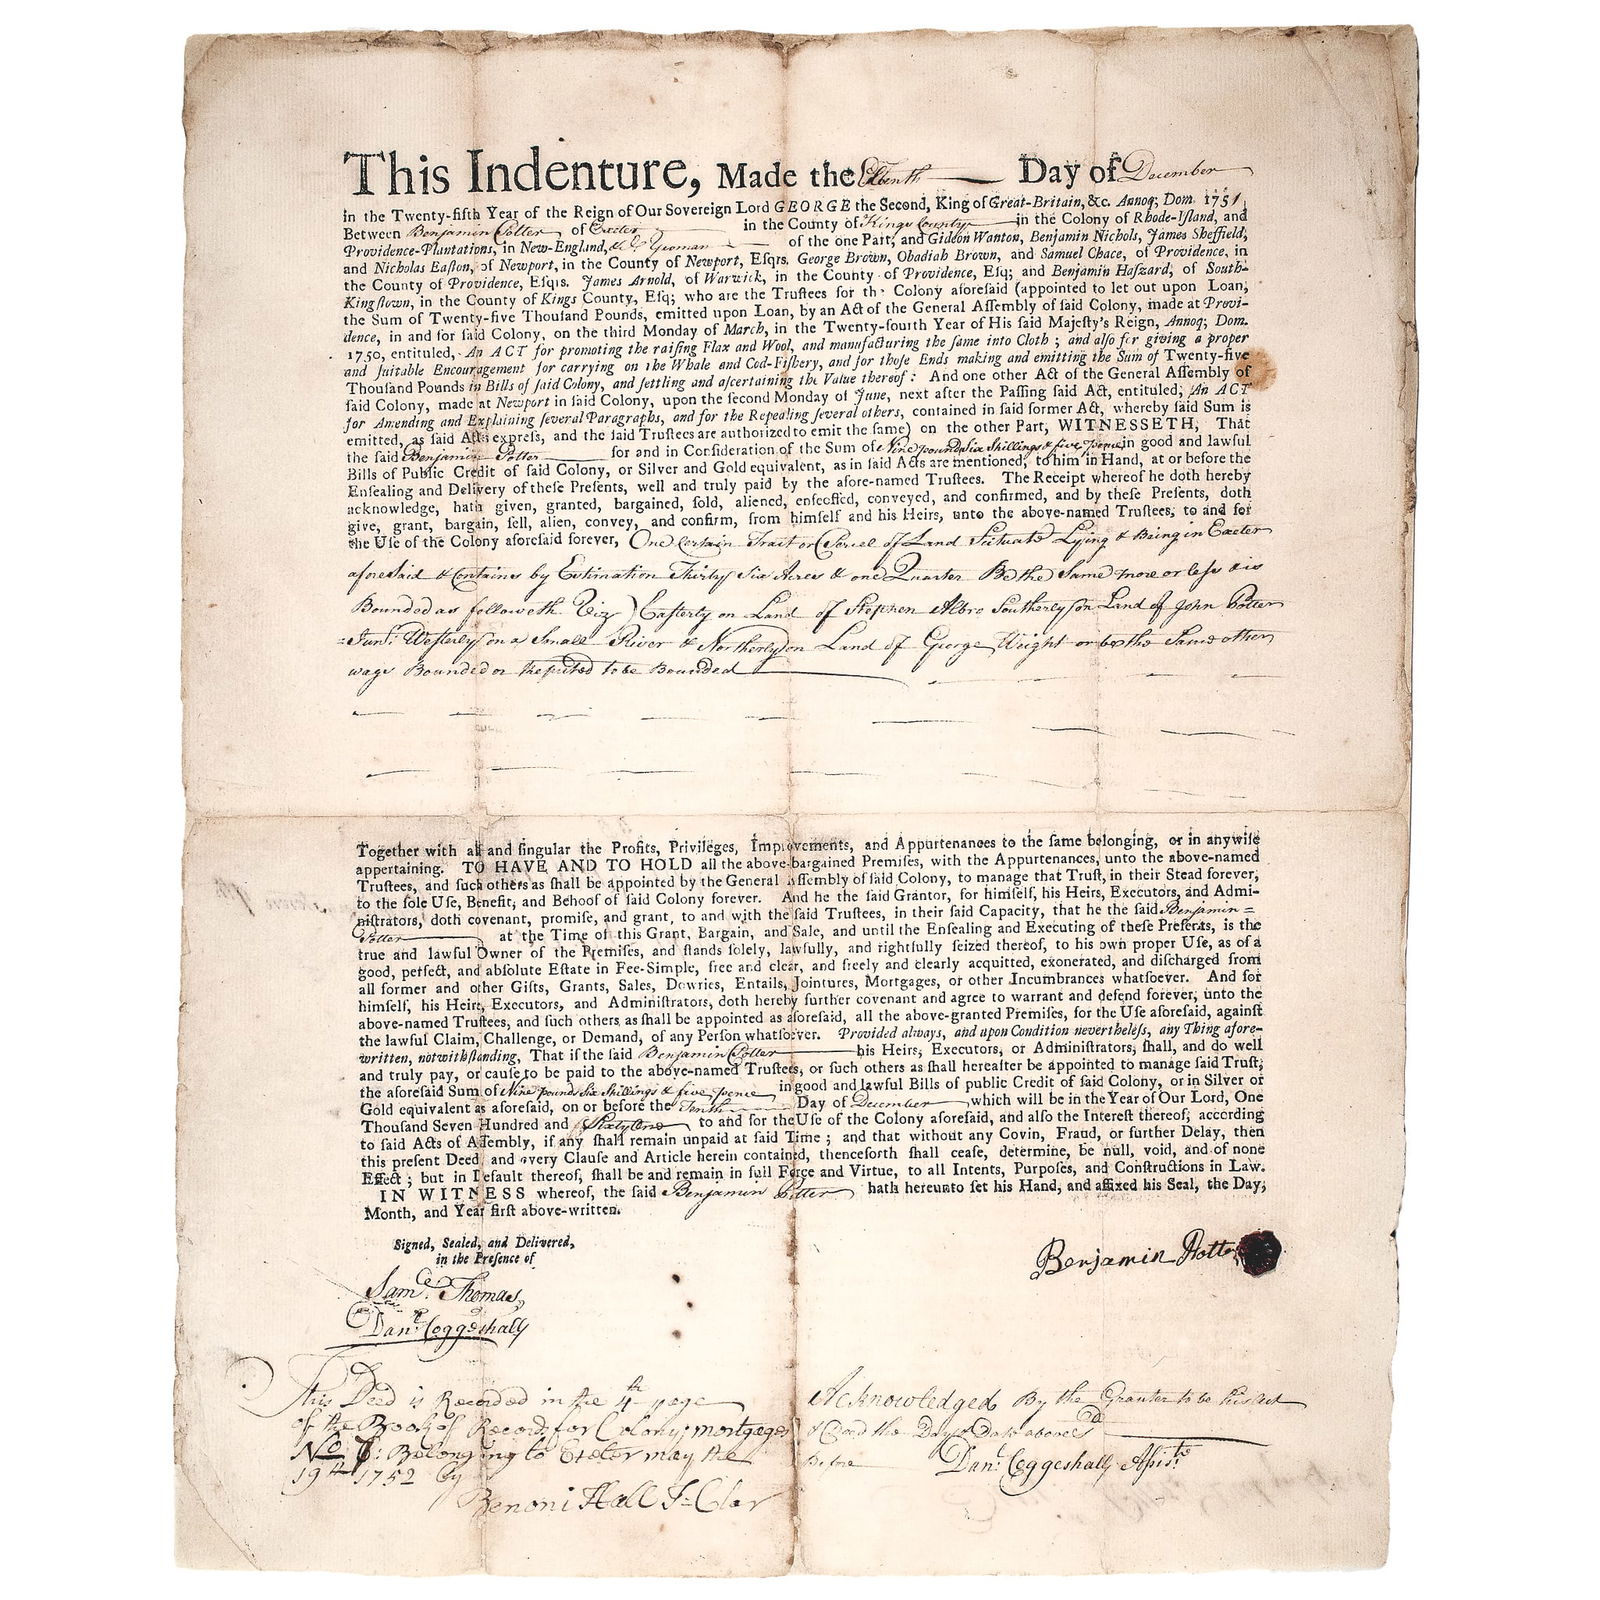 This Indenture, Made the Elbenth Day of December
in the Twenty-fifth Year of the Reign of Our Sovereign Lord GEORGE the Second, King of Great-Britain, &c. Annoq; Dom. 1751,
Between Benjamin Potter of Exeter in the County of Kings County in the Colony of Rhode-Iſland, and
Providence-Plantations, in New-England, Yeoman of the one Part; and Gideon Wanton, Benjamin Nichols, James Sheffield,
and Nicholas Eaſton, of Newport, in the County of Newport, Eſqrs. George Brown, Obadiah Brown, and Samuel Chace, of Providence, in
the County of Providence, Eſqrs. James Arnold, of Warwick, in the County of Providence, Eſq; and Benjamin Haſzard, of South-
Kingſtown, in the County of Kings County, Eſq; who are the Truſtees for the Colony aforeſaid (appointed to let out upon Loan,
the Sum of Twenty-five Thouſand Pounds, emitted upon Loan, by an Act of the General Aſſembly of ſaid Colony, made at Provi-
dence, in and for ſaid Colony, on the third Monday of March, in the Twenty-fourth Year of His ſaid Majeſty's Reign, Annoq; Dom.
1750, entituled, An ACT for promoting the raiſing Flax and Wool, and manufacturing the ſame into Cloth; and alſo for giving a proper
and ſuitable Encouragement for carrying on the Whale and Cod-Fiſhery, and for thoſe Ends making and emitting the Sum of Twenty-five
Thouſand Pounds in Bills of ſaid Colony, and ſettling and aſcertaining the Value thereof: And one other Act of the General Aſſembly of
ſaid Colony, made at Newport in ſaid Colony, upon the ſecond Monday of June, next after the Paſſing ſaid Act, entituled, An ACT
for Amending and Explaining ſeveral Paragraphs, and for the Repealing ſeveral others, contained in ſaid former Act, whereby ſaid Sum is
emitted, as ſaid Acts expreſs, and the ſaid Truſtees are authorized to emit the ſame) on the other Part, WITNESSETH, That
the ſaid Benjamin Potter for and in Conſideration of the Sum of Nine pounds Six Shillings & five pence in good and lawful
Bills of Public Credit of ſaid Colony, or Silver and Gold equivalent, as in ſaid Acts are mentioned, to him in Hand, at or before the
Enſealing and Delivery of theſe Preſents, well and truly paid by the afore-named Truſtees. The Receipt whereof he doth hereby
acknowledge, hath given, granted, bargained, ſold, aliened, enfeoffed, conveyed, and confirmed, and by theſe Preſents, doth
give, grant, bargain, ſell, alien, convey, and confirm, from himſelf and his Heirs, unto the above-named Truſtees, to and for
the Uſe of the Colony aforeſaid forever, One Certain Tract or Parcel of Land Scituate Lying & Being in Exeter
aforeSaid & Contains by Estimation Thirty Six Acres & one Quarter Be the Same more or leſs & is
Bounded as followeth Viz) Easterly on Land of Stephen Albro Southerly on Land of John Potter
Junr. Westerly on a Small River & Northerly on Land of George Wright or be the Same other
wage Bounded or Reputed to be Bounded
Together with all and ſingular the Profits, Privileges, Improvements, and Appurtenances to the ſame belonging, or in anywiſe
appertaining. TO HAVE AND TO HOLD all the above-bargained Premiſes, with the Appurtenances, unto the above-named
Truſtees, and ſuch others as ſhall be appointed by the General Aſſembly of ſaid Colony, to manage that Truſt, in their Stead forever,
to the ſole Uſe, Benefit, and Behoof of ſaid Colony forever. And he the ſaid Grantor, for himſelf, his Heirs, Executors, and Admi-
niſtrators, doth covenant, promiſe, and grant, to and with the ſaid Truſtees, in their ſaid Capacity, that he the ſaid Benjamin=
Potter at the Time of this Grant, Bargain, and Sale, and until the Enſealing and Executing of theſe Preſents, is the
true and lawful Owner of the Premiſes, and ſtands ſolely, lawfully, and rightfully ſeized thereof, to his own proper Uſe, as of a
good, perfect, and abſolute Eſtate in Fee-Simple, free and clear, and freely and clearly acquitted, exonerated, and diſcharged from
all former and other Gifts, Grants, Sales, Dowries, Entails, Jointures, Mortgages, or other Incumbrances whatſoever. And for
himſelf, his Heirs, Executors, and Adminiſtrators, doth hereby further covenant and agree to warrant and defend forever, unto the
above-named Truſtees, and ſuch others as ſhall be appointed as aforeſaid, all the above-granted Premiſes, for the Uſe aforeſaid, againſt
the lawful Claim, Challenge, or Demand, of any Perſon whatſoever. Provided always, and upon Condition nevertheleſs, any Thing afore-
written, notwithſtanding, That if the ſaid Benjamin Potter his Heirs, Executors, or Adminiſtrators, ſhall, and do well
and truly pay, or cauſe to be paid to the above-named Truſtees, or ſuch others as ſhall hereafter be appointed to manage ſaid Truſt,
the aforeſaid Sum of Nine pounds Six Shillings & five pence in good and lawful Bills of public Credit of ſaid Colony, or in Silver or
Gold equivalent as aforeſaid, on or before the Tenth Day of December which will be in the Year of Our Lord, One
Thouſand Seven Hundred and Sixty One to and for the Uſe of the Colony aforeſaid, and alſo the Intereſt thereof, according
to ſaid Acts of Aſſembly, if any ſhall remain unpaid at ſaid Time; and that without any Covin, Fraud, or further Delay, then
this preſent Deed, and every Clauſe and Article herein contained, thenceforth ſhall ceaſe, determine, be null, void, and of none
Effect; but in Default thereof, ſhall be and remain in full Force and Virtue, to all Intents, Purpoſes, and Conſtructions in Law.
IN WITNESS whereof, the ſaid Benjamin Potter hath hereunto ſet his Hand, and affixed his Seal, the Day,
Month, and Year firſt above-written.
Signed, Sealed, and Delivered,
in the Preſence of
Benjamin Potter
Saml. Thomas,
Danl. Coggeshall
This Deed is Recorded in the 4th page
of the Book of Record for Colony mortgages
No 6: Belonging to Exeter may the
19th 1752 by
Benoni Hall T= Clar
Acknowledged By the Granter to be his Act
& Deed the Day & Date aboveSd
Before Danl. Coggeshall Aſsistt.